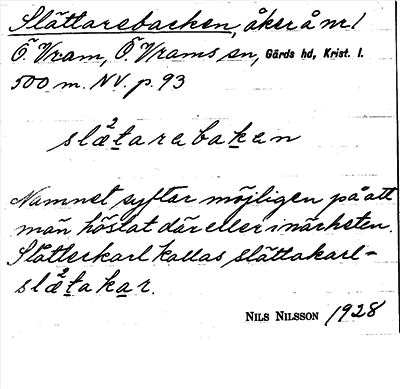 Slättarebacken, åker å nr 1
Ö. Vram, Ö. Vrams sn, Gärds hd, Krist. l.
500 m. NV. p. 93
slæ²tarabakan
Namnet syftar möjligen på att
man höstat där eller i närheten.
Slåtterkarl kallas slättakarl-
slæ²takar.
NILS NILSSON 1928